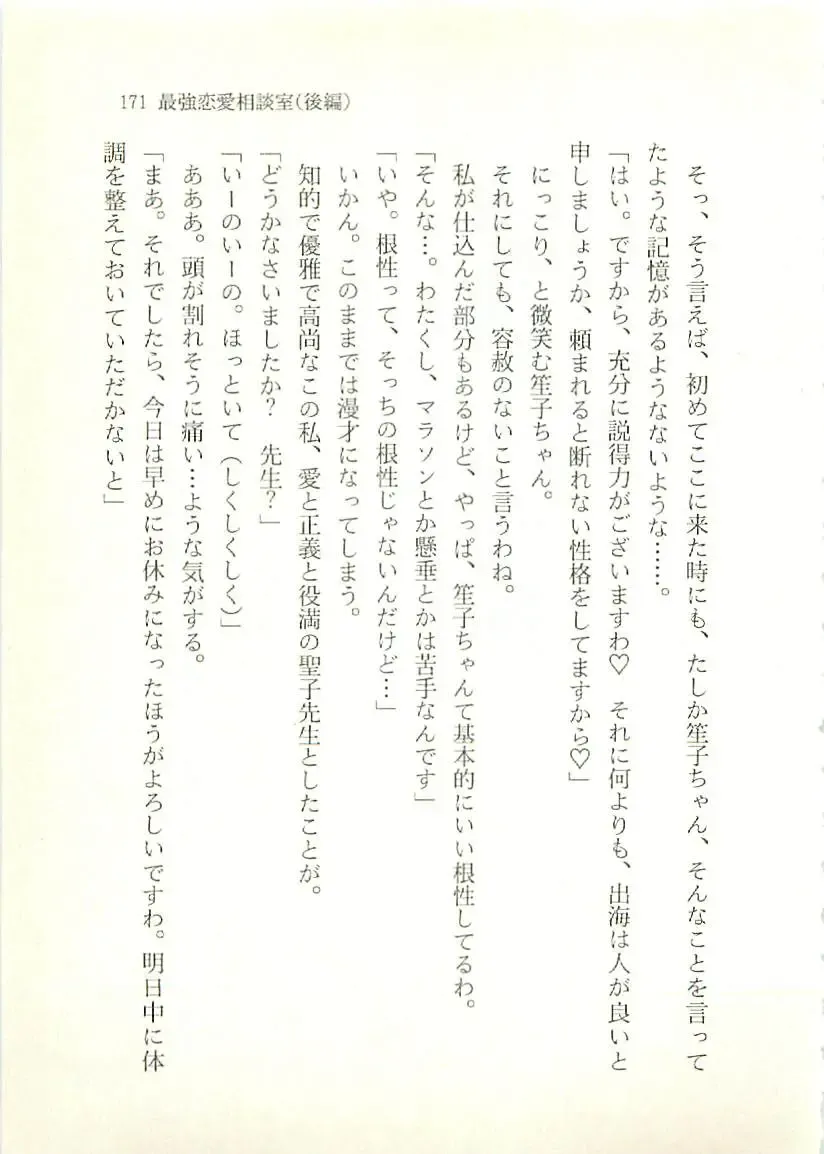 171 最強恋愛相談室(後編)
そっ、そう言えば、初めてここに来た時にも、たしか笙子ちゃん、そんなことを言って
たような記憶があるようなないような……。
「はい。ですから、充分に説得力がございますわ♡　それに何よりも、出海は人が良いと
申しましょうか、頼まれると断れない性格をしてますから♡」
にっこり、と微笑む笙子ちゃん。
それにしても、容赦のないこと言うわね。
私が仕込んだ部分もあるけど、やっぱ、笙子ちゃんて基本的にいい根性してるわ。
「そんな…。わたくし、マラソンとか懸垂とかは苦手なんです」
「いや。根性って、そっちの根性じゃないんだけど…」
いかん。このままでは漫才になってしまう。
知的で優雅で高尚なこの私、愛と正義と役満の聖子先生としたことが。
「どうかなさいましたか?　先生?」
「いーのいーの。ほっといて(しくしくしく)」
あああ。頭が割れそうに痛い…ような気がする。
「まあ。それでしたら、今日は早めにお休みになったほうがよろしいですわ。明日中に体
調を整えておいていただかないと」